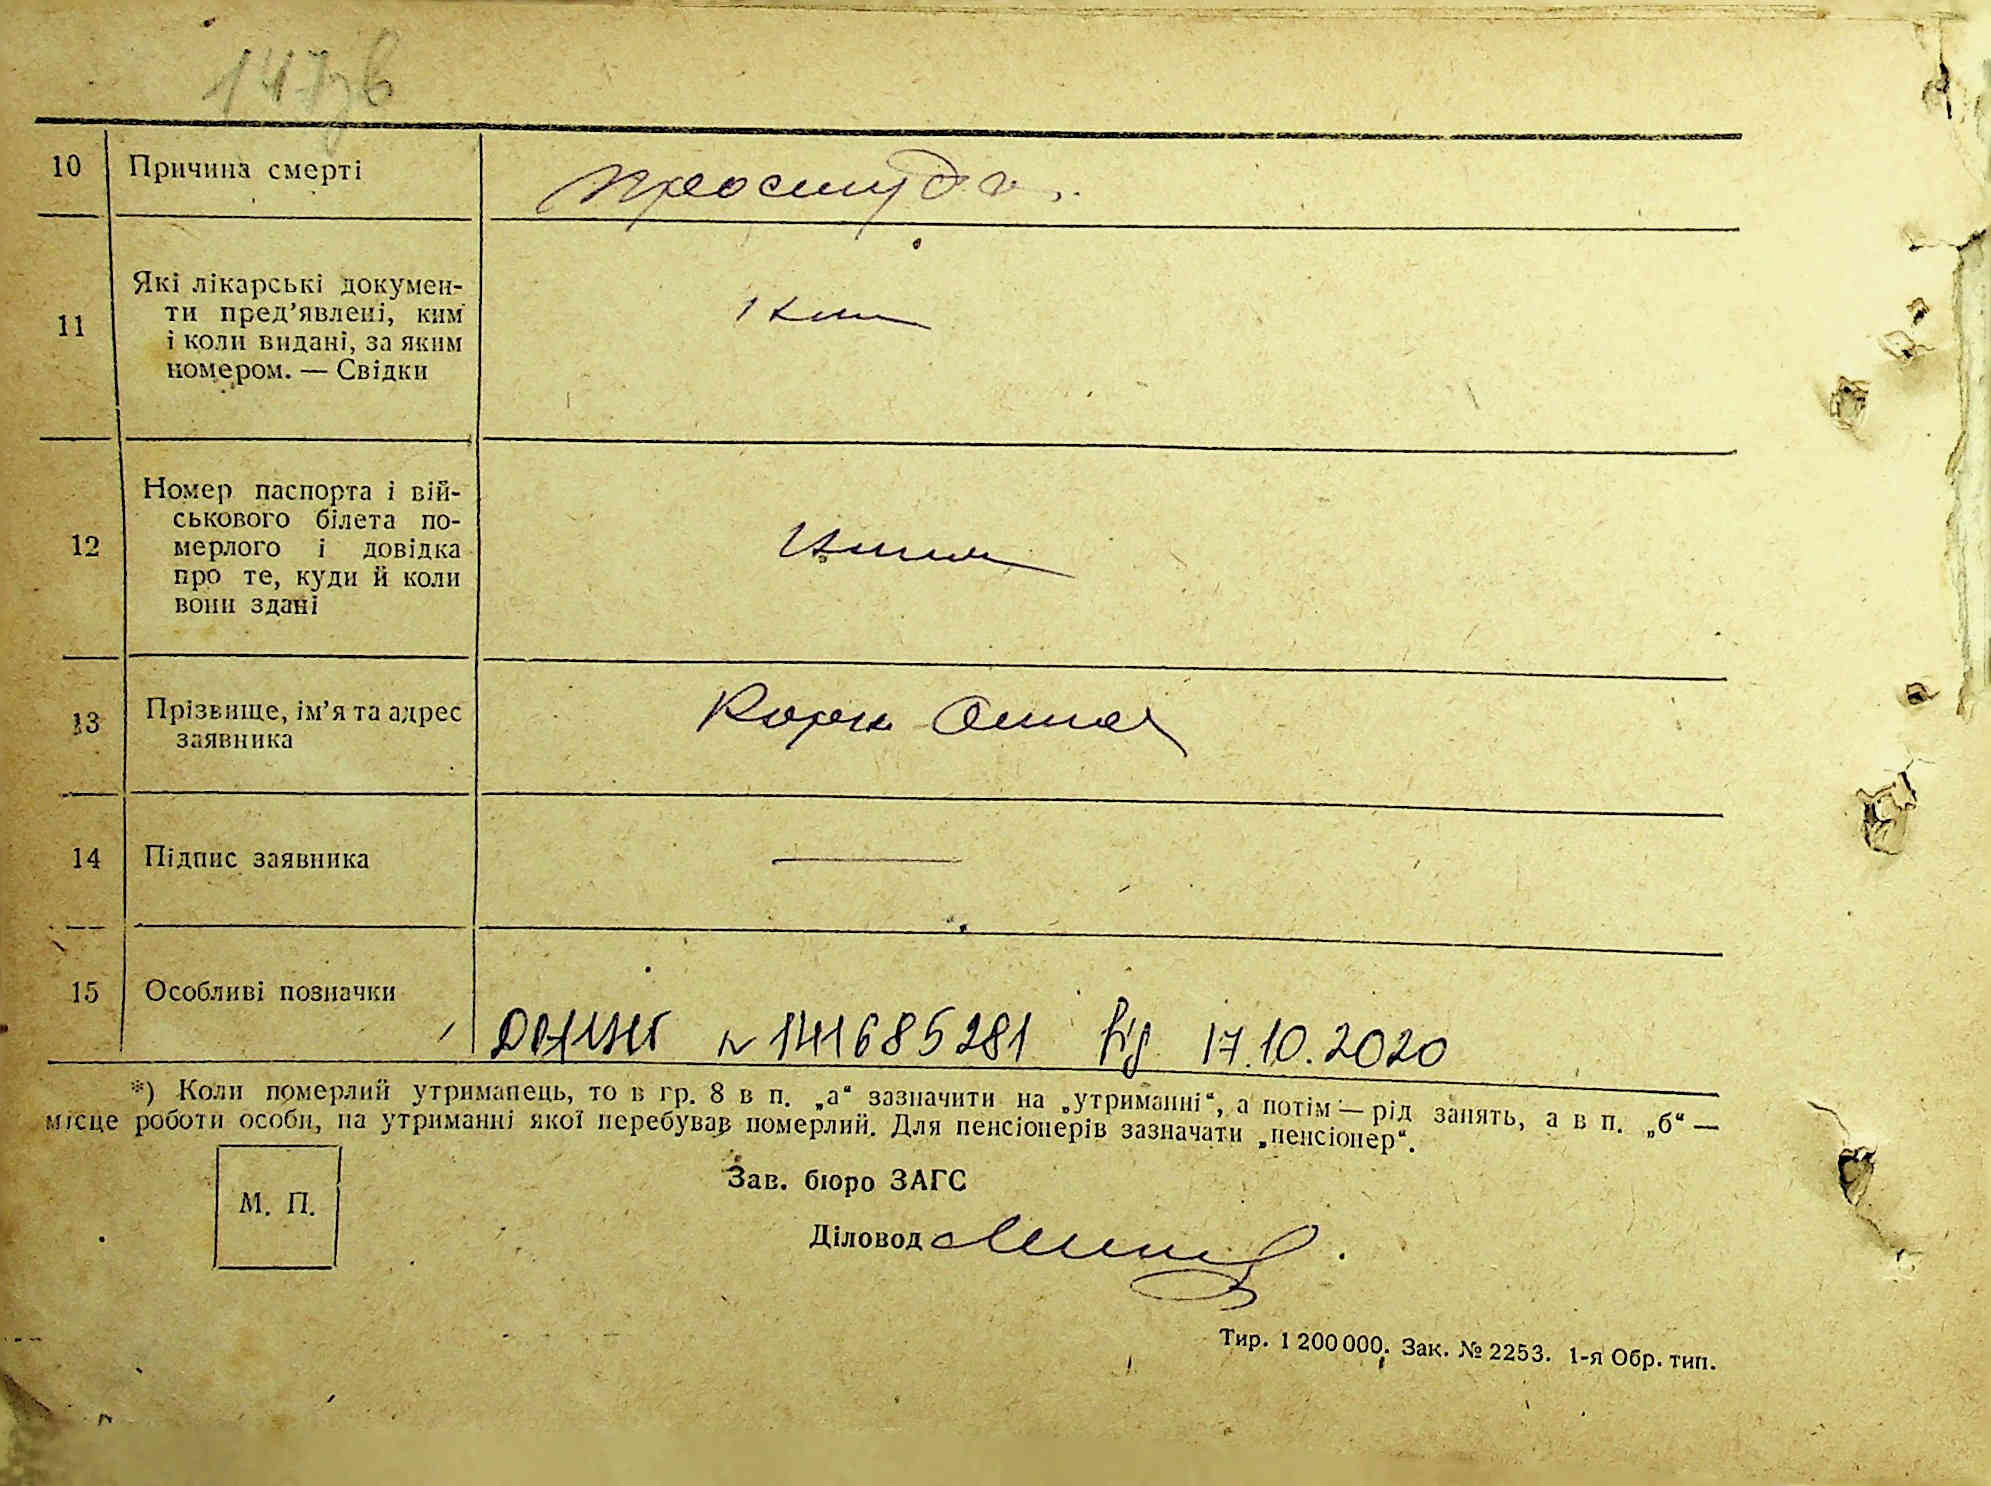 147зв
10 Причина смерті простуда.
11 Які лікарські докумен-
ти пред’явлені, ким
і коли видані, за яким
номером. — Свідки
12 Номер паспорта і вій-
ськового білета по-
мерлого і довідка
про те, куди й коли
вони здані
13 Прізвище, ім’я та адрес
заявника
14 Підпис заявника —
15 Особливі позначки
№ 141685281 від 17.10.2020
*) Коли померлий утриманець, то в гр. 8 в п. „а“ зазначити на „утриманні“, а потім — рід занять, а в п. „б“ —
місце роботи особи, на утриманні якої перебував померлий. Для пенсіонерів зазначати „пенсіонер“.
М. П.
Зав. бюро ЗАГС
Діловод
Тир. 1 200 000. Зак. № 2253. 1-я Обр. тип.